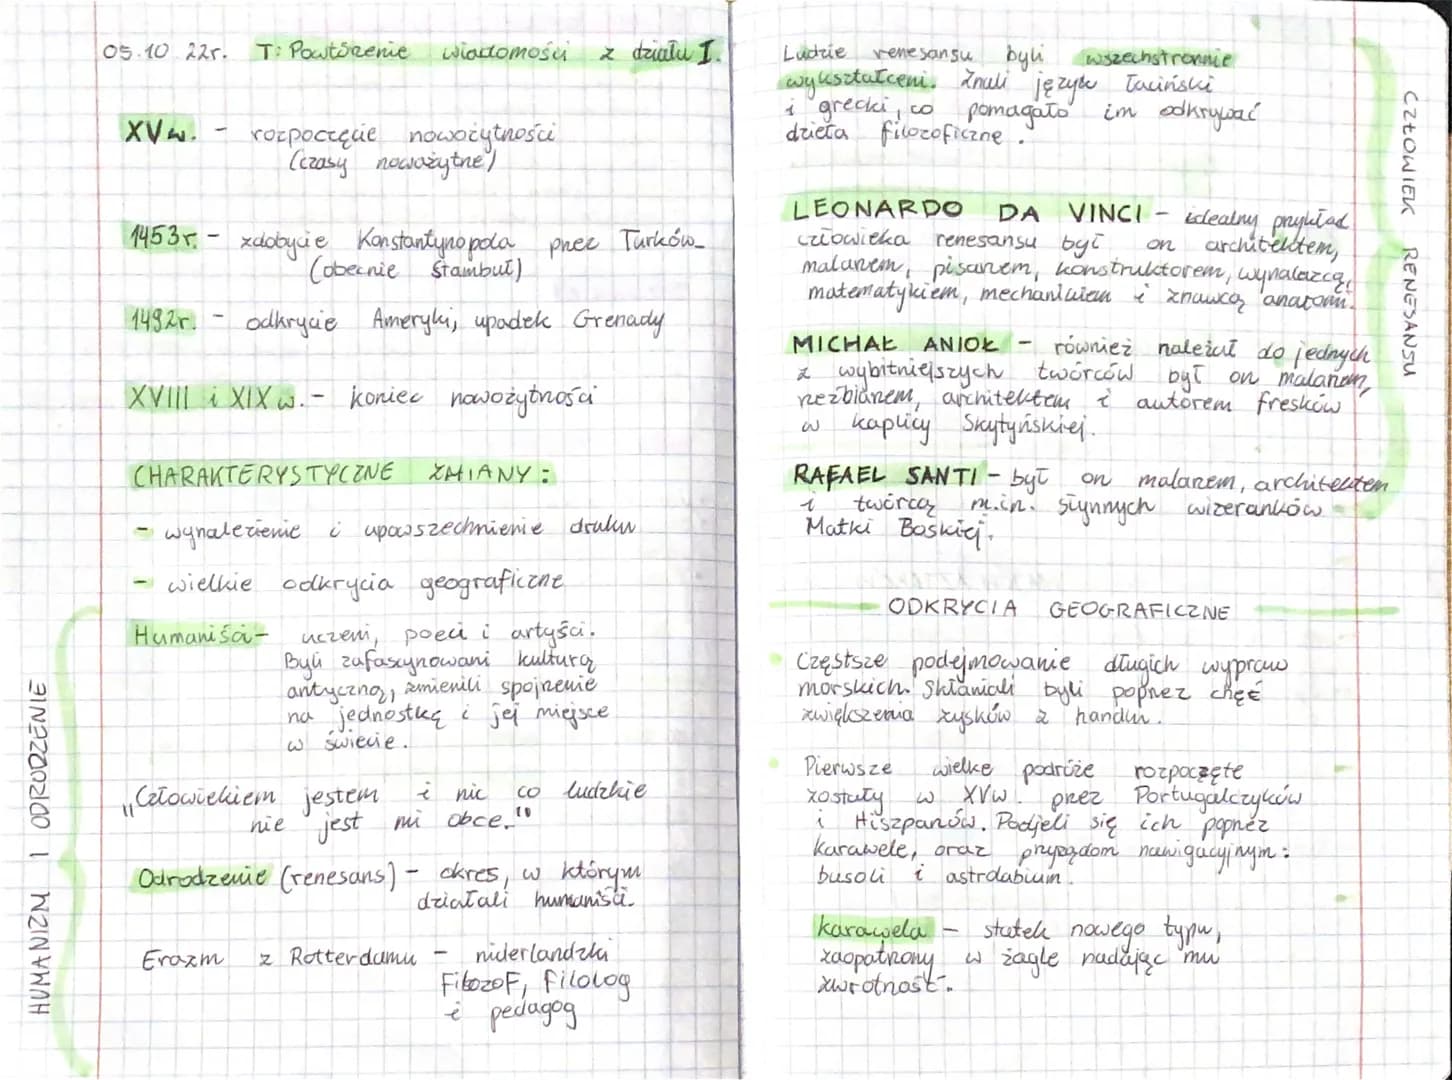 05.10.22r. T: Powtórzenie wiadomości z działu I.
XVw. - rozpoczęcie nowożytności
(czasy nowożytne)
1453r. - zdobycie Konstantynopola przez Turków
(obecnie Stambuł)
1492r. - odkrycie Ameryki, upadek Grenady
XVIII i XIX w. - koniec nowożytności
CHARAKTERYSTYCZNE ZMIANY:
- wynalezienie i upowszechnienie druku
- wielkie odkrycia geograficzne
HUMANIZM I ODRODZENIE
Humaniści - uczeni, poeci i artyści.
Byli zafascynowani kulturą
antyczną, zmienili spojrzenie
na jednostkę i jej miejsce
w świecie.
„Człowiekiem jestem i nic co ludzkie
nie jest mi obce."
Odrodzenie (renesans) - okres, w którym
działali humaniści.
Erazm z Rotterdamu - niderlandzki
filozof, filolog
i pedagog
Ludzie renesansu byli wszechstronnie
wykształceni. Znali język łaciński
i grecki, co pomagało im odkrywać
dzieła filozoficzne.
CZŁOWIEK RENESANSU
LEONARDO DA VINCI - idealny przykład
człowieka renesansu był on architektem,
malarzem, pisarzem, konstruktorem, wynalazcą,
matematykiem, mechanikiem i znawcą anatomi.
MICHAŁ ANIOŁ - również należał do jednych
z wybitniejszych twórców był on malarzem,
rzeźbiarzem, architektem i autorem fresków
w kaplicy Skytyńskiej.
RAFAEL SANTI - był on malarzem, architektem
i twórcą m.in. słynnych wizerunków
Matki Boskiej.
ODKRYCIA GEOGRAFICZNE
Częstsze podejmowanie długich wypraw
morskich. Skłaniali byli poprzez chęć
zwiększenia zysków z handlu.
Pierwsze wielke podróże rozpoczęte
zostały w XVw. przez Portugalczyków
i Hiszpanów. Podjeli się ich poprzez
karawele, oraz przyrządom nawigacyjnym:
busoli i astrolabium.
karawela - statek nowego typu,
zaopatrzony w żagle nadając mu
zwrotność.